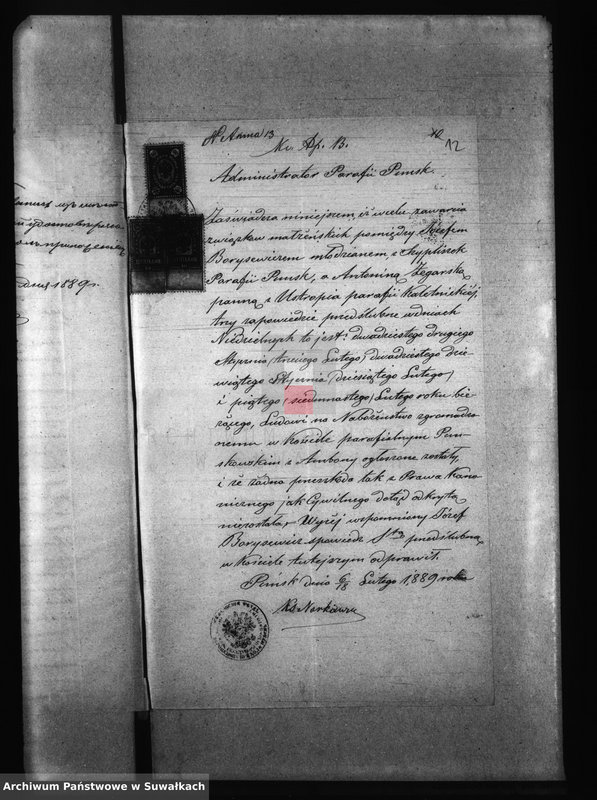 № Akma 13
12
Administrator Parafii Puńsk.
Zaświadcza niniejszem, iż w celu zawarcia
związków małżeńskich pomiędzy Józefem
Borysewiczem młodzianem, z Szypliszek
Parafii Puńsk, a Antoniną Żegarską
panną z Ustropia parafii Kaletnickiej,
trzy zapowiedzie przedślubne w dniach
Niedzielnych to jest: dwudziestego drugiego
Stycznia /trzeciego Lutego/ dwudziestego dzie-
wiątego Stycznia /dziesiątego Lutego/
i piątego /siedmnastego/ Lutego roku bie-
żącego, Ludowi na Nabożeństwo zgromadzo-
nemu w Kościele parafialnym Puń-
skowskim z Ambony ogłoszone zostały,
i że żadna przeszkoda tak z Prawa Kano-
nicznego jak Cywilnego dotąd odkrytą
niezostała. Wyżej wspomniony Józef
Borysewicz spowiedź S-tą przedślubną
w Kościele tutejszym odprawił.
Puńsk dnia 6/18 Lutego 1889 roku
Ks Narkiewicz
1889 г.
Archiwum Państwowe w Suwałkach